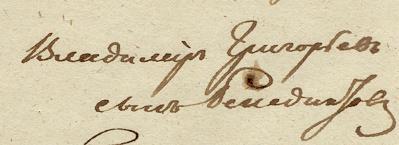 Владимиръ Григорьевъ
сынъ Бенедиктовъ